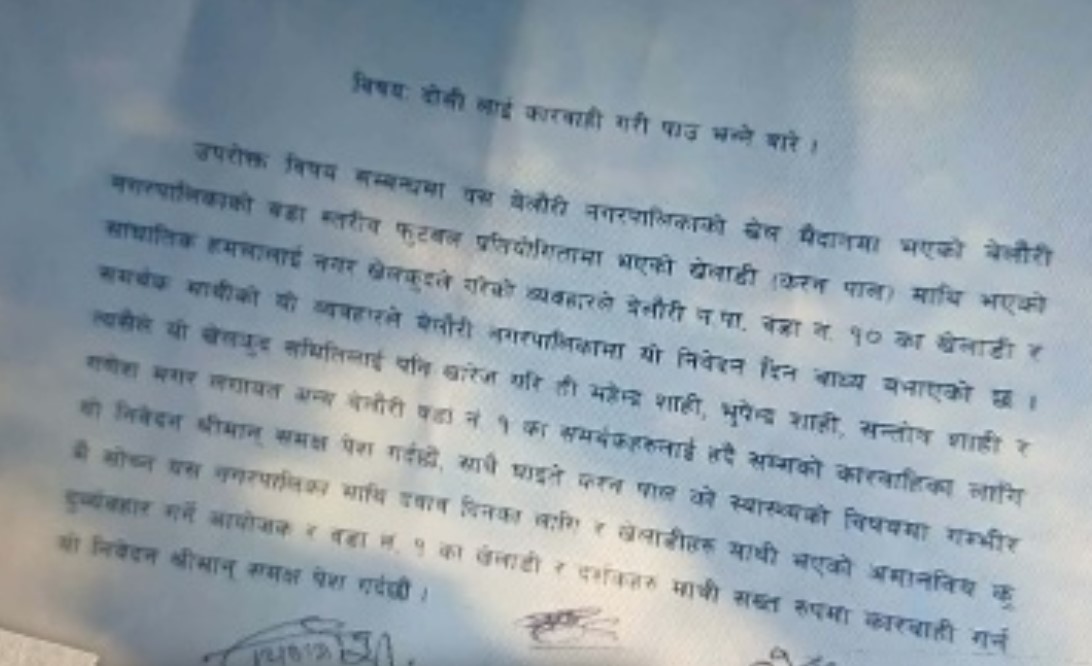 विषय: दोसी लाई कारवाही गरी पाउ भन्ने बारे ।
उपरोक्त विषय सम्बन्धमा यस बेलौरी नगरपालिकाको खेल मैदानमा भएको बेलौरी
नगरपालिकाको वडा स्तरीय फुटबल प्रतियोगितामा भएको खेलाडी (करन पाल) माथि भएको
सांघातिक हमलालाई नगर खेलकुदले गरेको व्यवहारले बेलौरी न.पा. वडा नं. १० का खेलाडी र
समर्थक माथीको यो व्यवहारले बेलौरी नगरपालिकामा यो निवेदन दिन बाध्य बनाएको छ ।
त्यसैले यो खेलकुद समितिलाई पनि खारेज गरि ती महेन्द्र शाही, भुपेन्द्र शाही, सन्तोष शाही र
गणेश मगर लगायत अन्य बेलौरी वडा नं १ का समर्थकहरुलाई हदै सम्मको कारवाहिका लागि
यो निवेदन श्रीमान् समक्ष पेश गर्दछौ, साथै घाइते करन पाल को स्वास्थ्यको विषयमा गम्भीर
भै सोच्न यस नगरपालिका माथि दवाव दिनका लागि र खेलाडीहरु माथी भएको अमानविय कू
दुर्व्यवहार गर्ने आयोजक र वडा नं. १ का खेलाडी र दर्शकहरु माथी सख्त रुपमा कारवाही गर्न
यो निवेदन श्रीमान् समक्ष पेश गर्दछौ ।